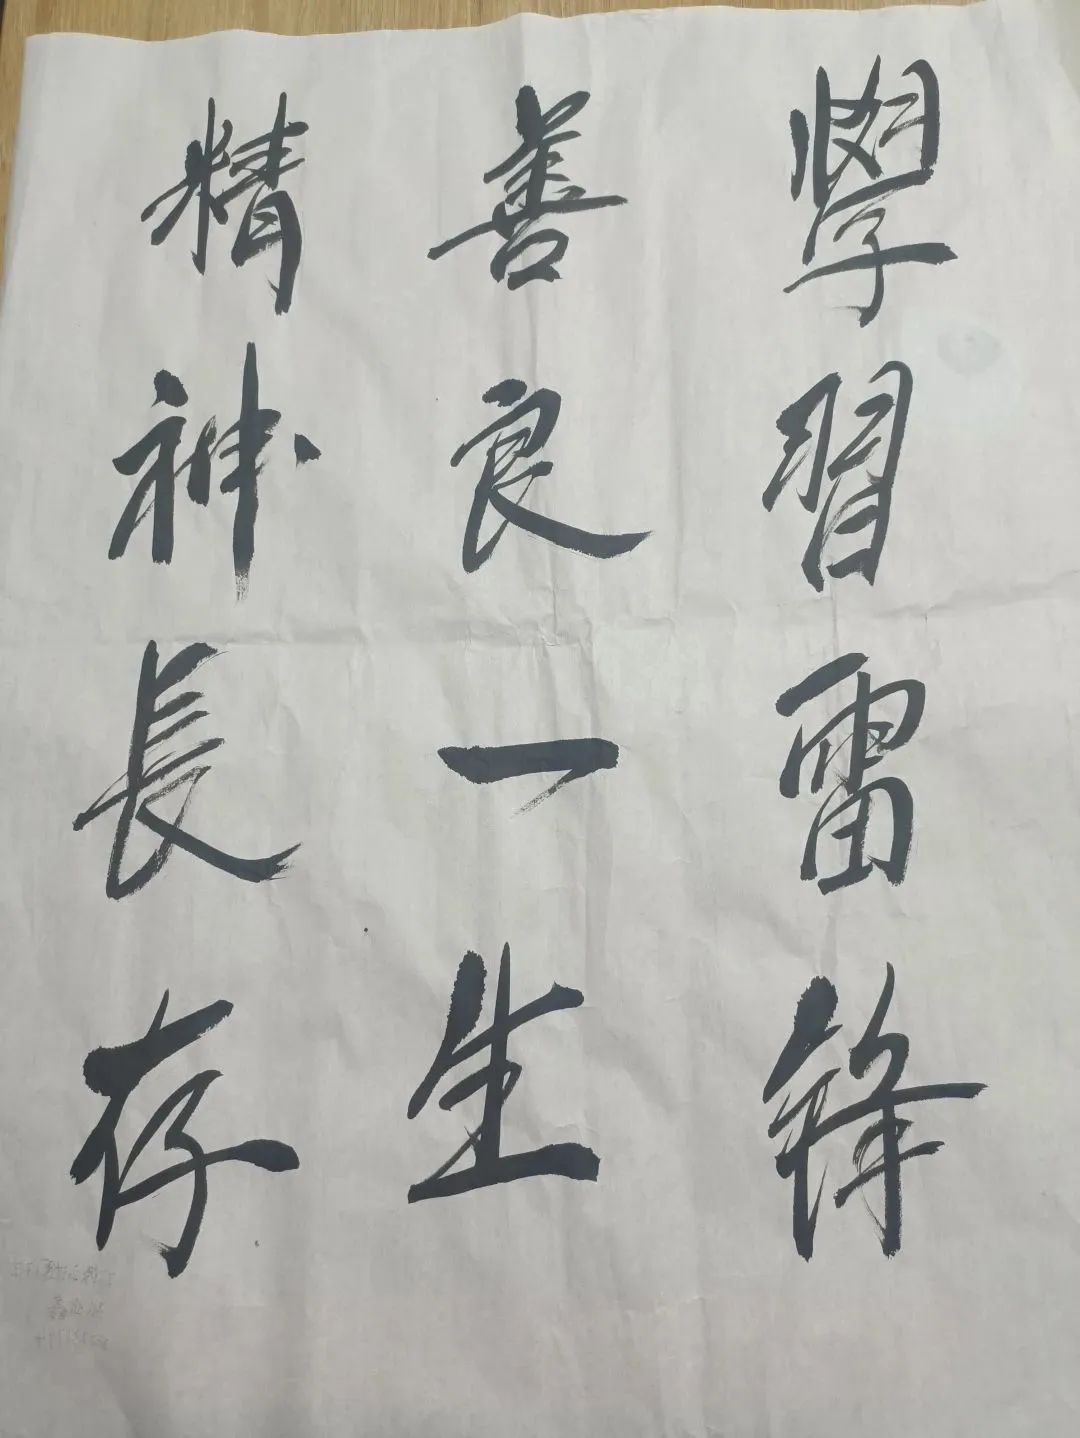 學習雷锋
善良一生
精神長存